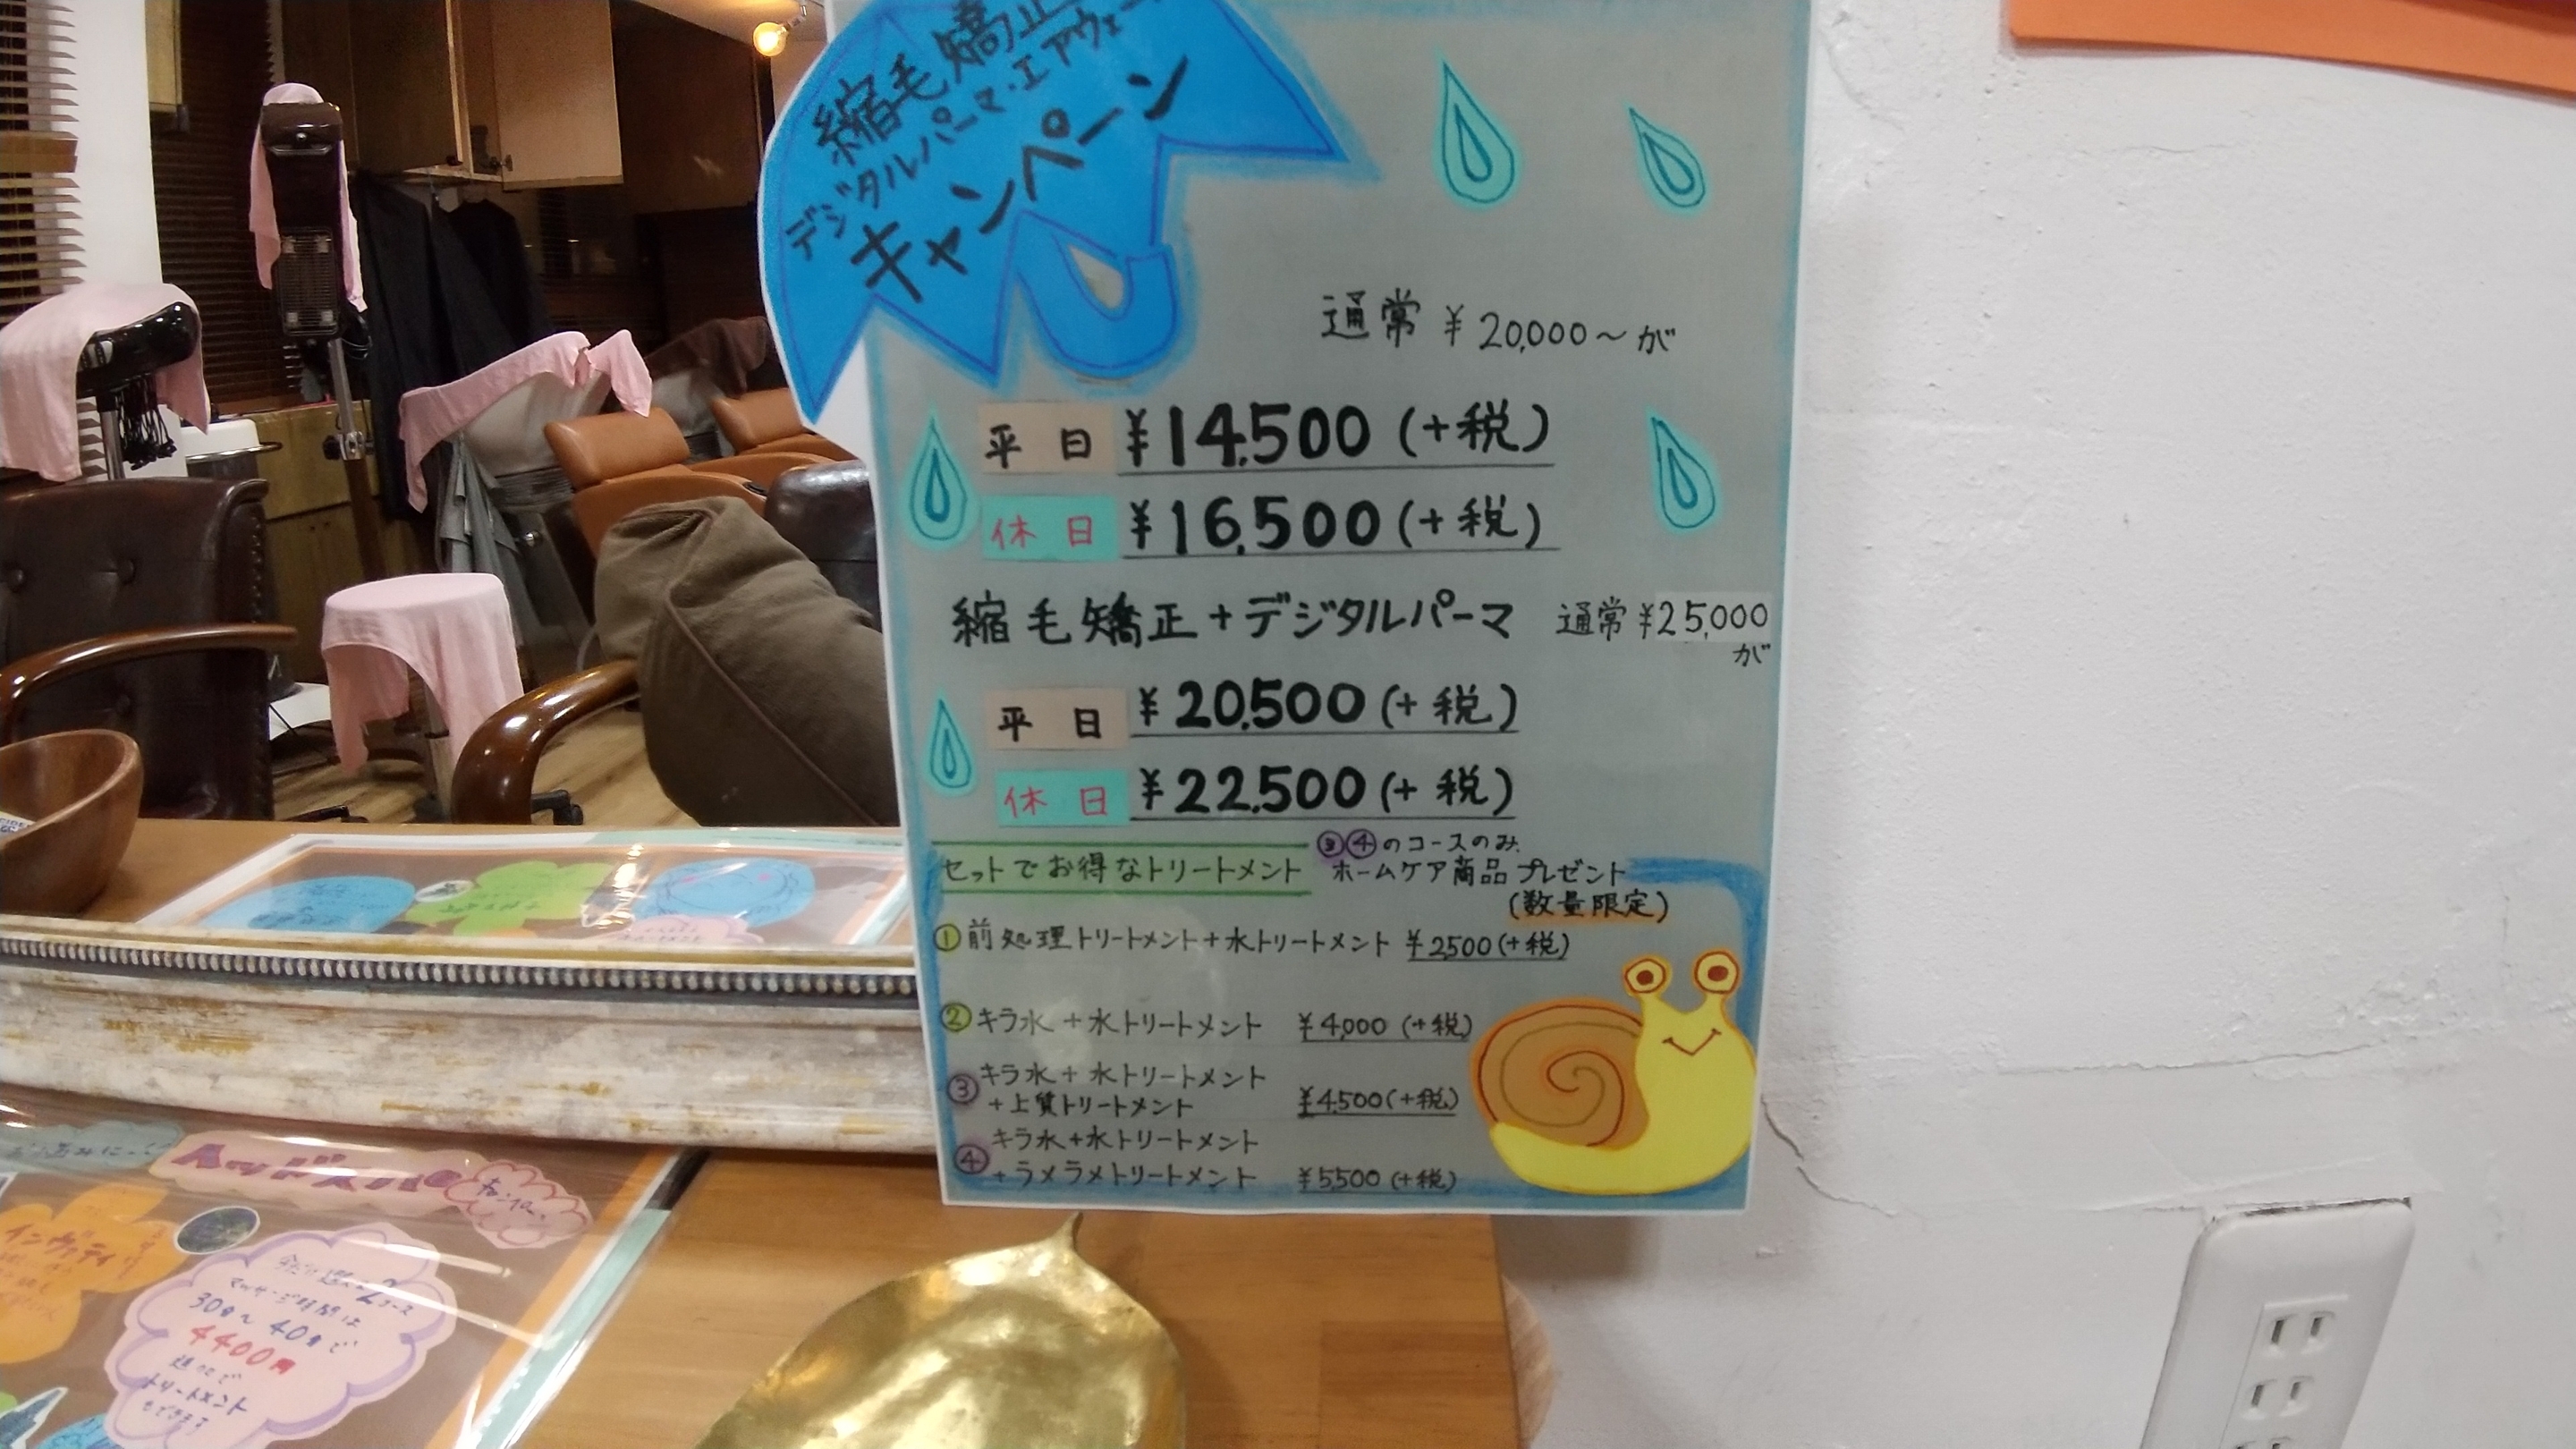 縮毛矯正
デジタルパーマ・エアウェー
キャンペーン
通常 ¥20,000～が
平日 ¥14,500 (+税)
休日 ¥16,500 (+税)
縮毛矯正+デジタルパーマ 通常¥25,000
が
平日 ¥20,500 (+税)
休日 ¥22,500 (+税)
③④のコースのみ
セットでお得なトリートメント ホームケア商品プレゼント
(数量限定)
①前処理トリートメント+水トリートメント ¥2,500(+税)
②キラ水+水トリートメント ¥4,000 (+税)
③キラ水+水トリートメント
+上質トリートメント ¥4,500(+税)
④キラ水+水トリートメント
+ラメラメトリートメント ¥5,500 (+税)
ヘッドスパ
インヴァティ
マッサージ時間は
30分～40分で
4400円
トリートメント
もできます